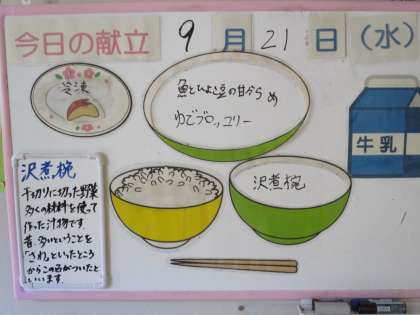 今日の献立 9月21日(水)
冷凍
魚とひよこ豆の甘からめ
ゆでブロッコリー
牛乳
沢煮椀
沢煮椀
千切りに切った野菜
多くの材料を使って
作った汁物です
昔、多いということを
「さわ」といったところ
からこの名がついたと
いいます。